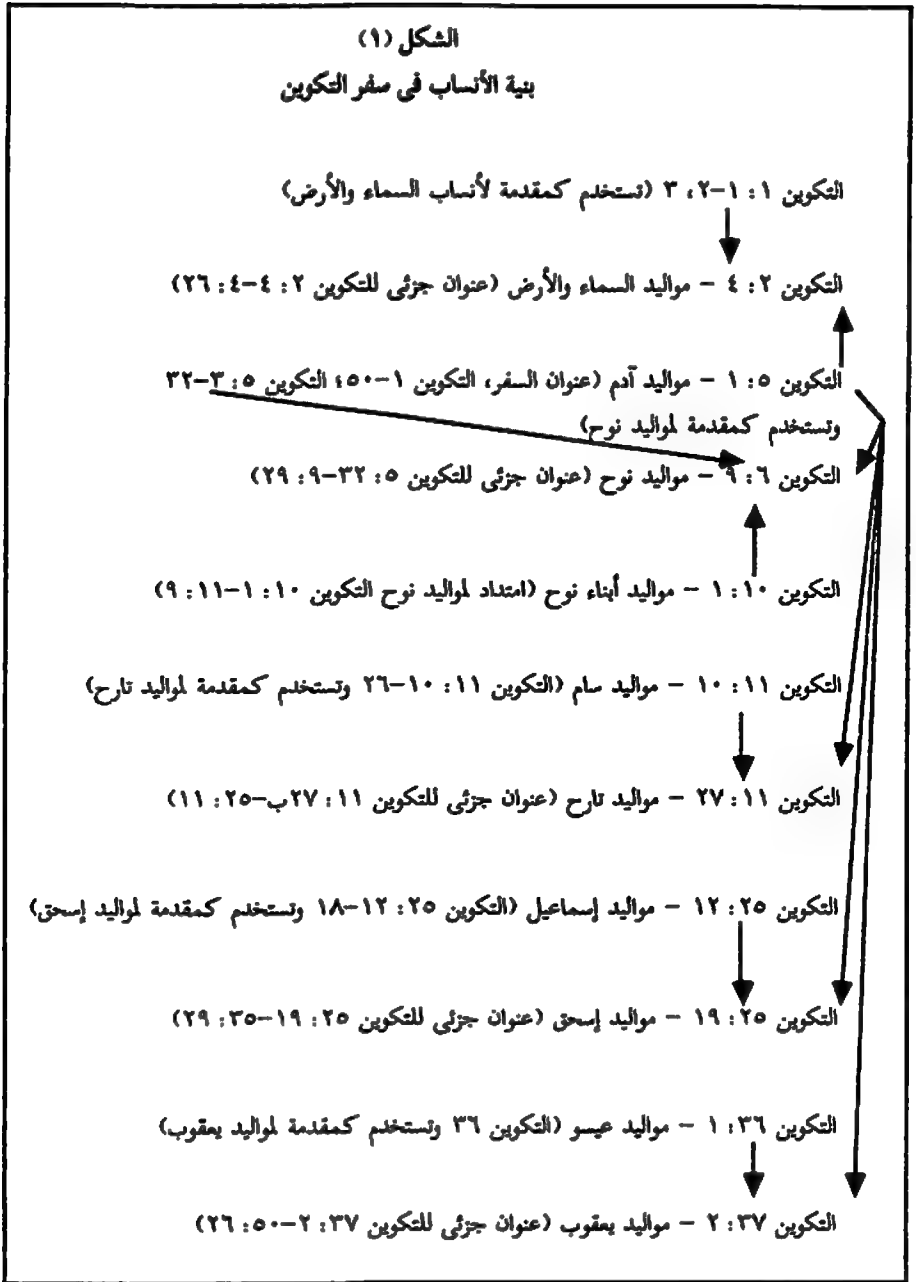 الشكل (١)
بنية الأنساب فى سفر التكوين
التكوين ١: ١-٢، ٣ (تستخدم كمقدمة لأنساب السماء والأرض)
التكوين ٢: ٤ - مواليد السماء والأرض (عنوان جزئى للتكوين ٢: ٤-٤: ٢٦)
التكوين ٥: ١ - مواليد آدم (عنوان السفر، التكوين ١-٥٠؛ التكوين ٥: ٣-٣٢
وتستخدم كمقدمة لمواليد نوح)
التكوين ٦: ٩ - مواليد نوح (عنوان جزئى للتكوين ٥: ٣٢-٩: ٢٩)
التكوين ١٠: ١ - مواليد أبناء نوح (امتداد لمواليد نوح التكوين ١٠: ١-١١: ٩)
التكوين ١١: ١٠ - مواليد سام (التكوين ١١: ١٠-٢٦ وتستخدم كمقدمة لمواليد تارح)
التكوين ١١: ٢٧ - مواليد تارح (عنوان جزئى للتكوين ١١: ٢٧ب-٢٥: ١١)
التكوين ٢٥: ١٢ - مواليد إسماعيل (التكوين ٢٥: ١٢-١٨ وتستخدم كمقدمة لمواليد إسحق)
التكوين ٢٥: ١٩ - مواليد إسحق (عنوان جزئى للتكوين ٢٥: ١٩-٣٥: ٢٩)
التكوين ٣٦: ١ - مواليد عيسو (التكوين ٣٦ وتستخدم كمقدمة لمواليد يعقوب)
التكوين ٣٧: ٢ - مواليد يعقوب (عنوان جزئى للتكوين ٣٧: ٢-٥٠: ٢٦)